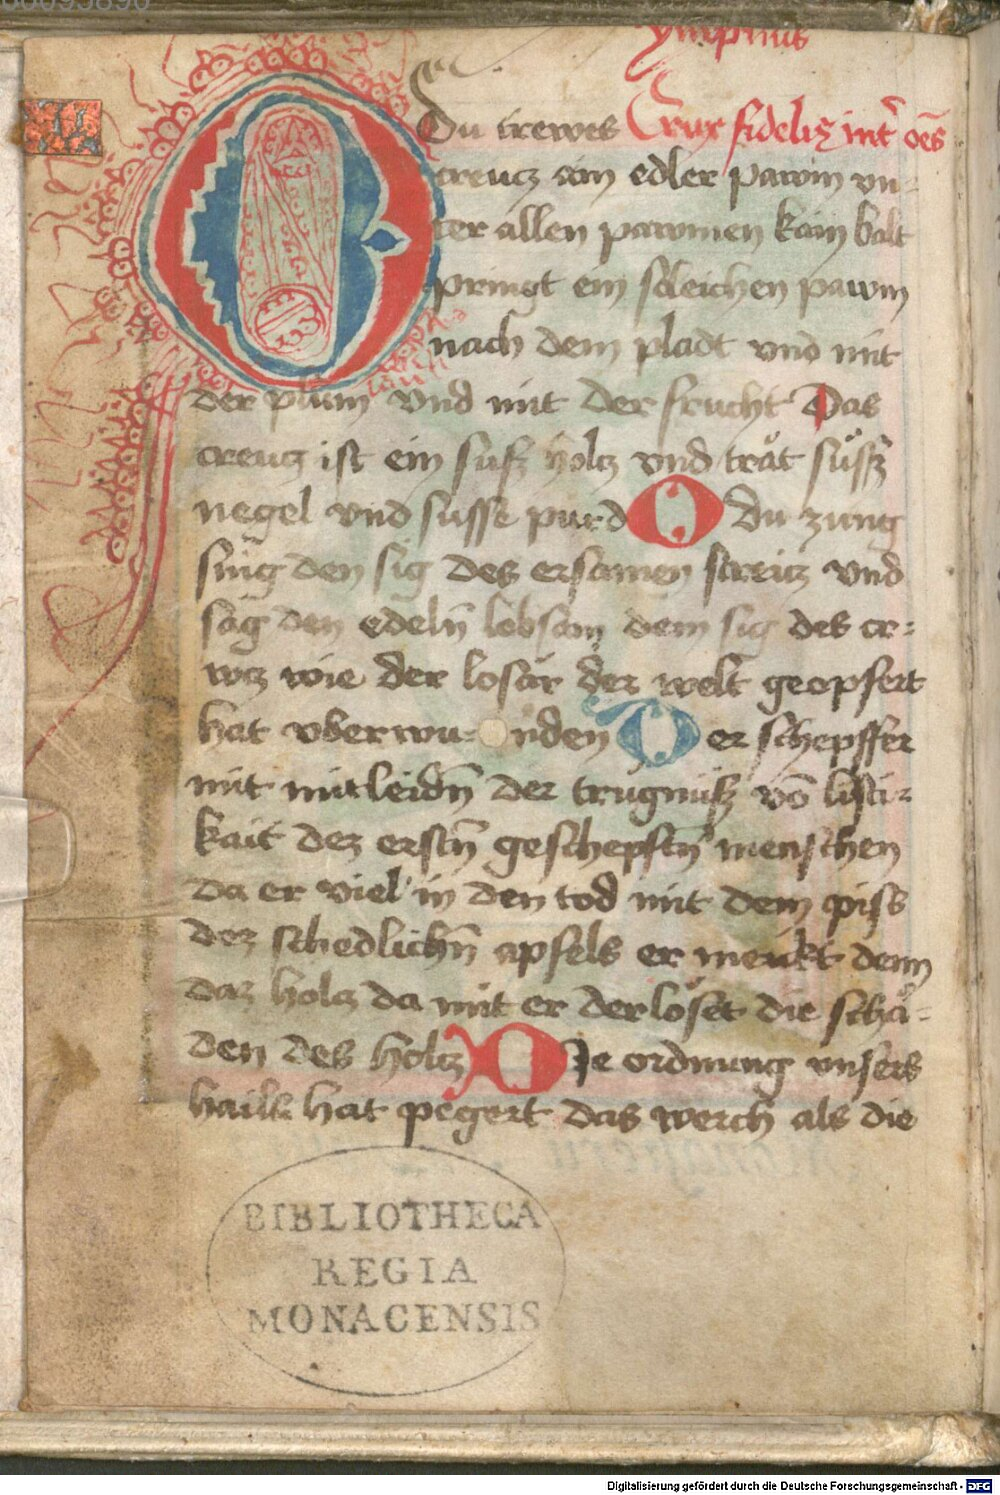 Ympnus
O Du trewes Crux fidelis int̄ oēs
creucz ain edler pawm vn-
ter allen pawmen kain balt
pringt ein solichen pawm
nach dem pladt vnd mit
der plum vnd mit der frucht Das
creucz ist ein susz holcz vnd trät süsz
negel vnd susse purd O Du zung
sing den sig des ersamen streitz vnd
sag den edelñ lobsam dem sig des cr-
wcz wie der losär der welt geopfert
hat vberwu- nden Der schepffer
mit mitleidñ der trugnusz võ listi-
kait dez erstñ geschepftñ menschen
da er viel in den tod mit dem piss
dez schedlichñ apfels er merkt denn
daz holcz da mit er derlöset die schä-
den des holcz Die ordnung vnsers
hails hat pegert das werch als die
BIBLIOTHECA
REGIA
MONACENSIS
Digitalisierung gefördert durch die Deutsche Forschungsgemeinschaft - DFG